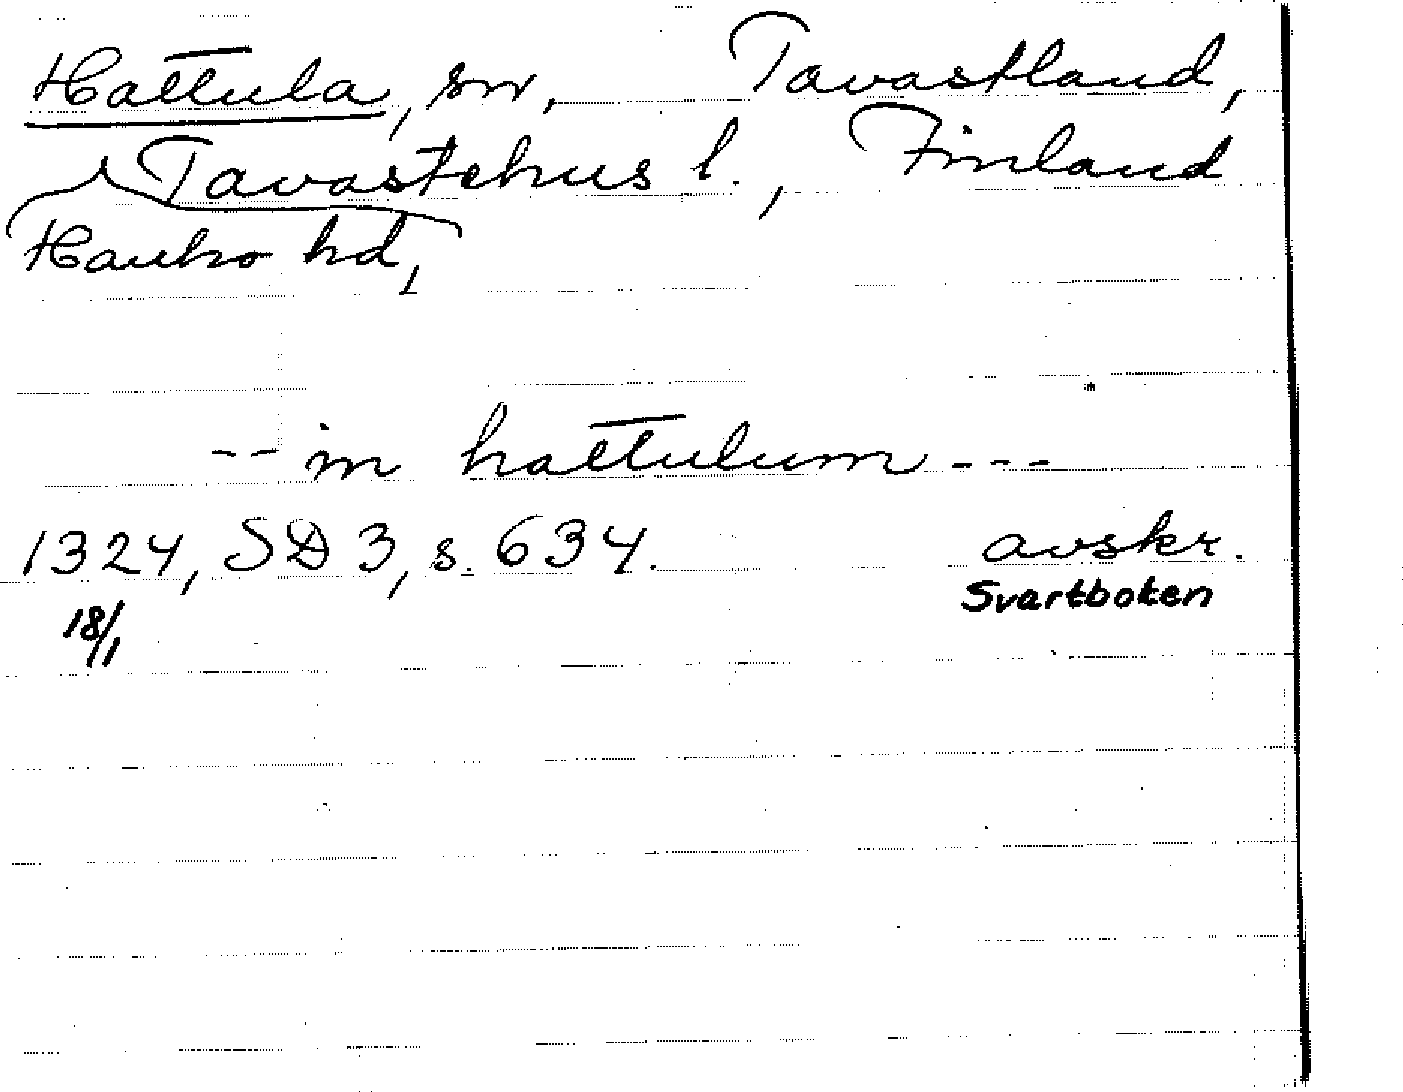 Hattula, sn, Tavastland,
Tavastehus l., Finland
Hauho hd,
-- in hattulum ---
1324, SD 3, s. 634. avskr.
18/1 Svartboken